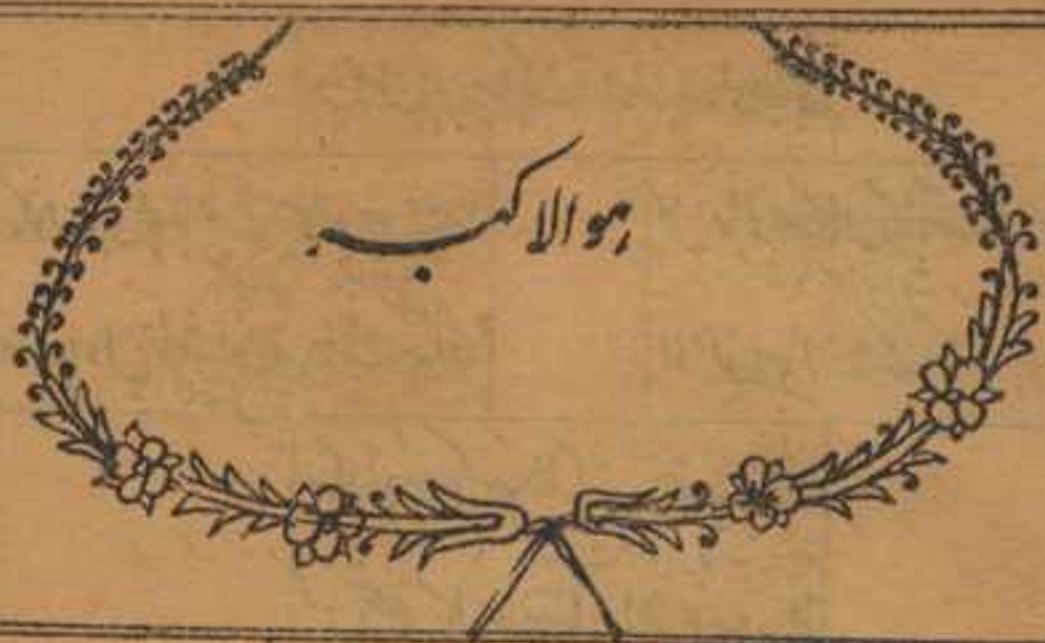 ہوالاکبر